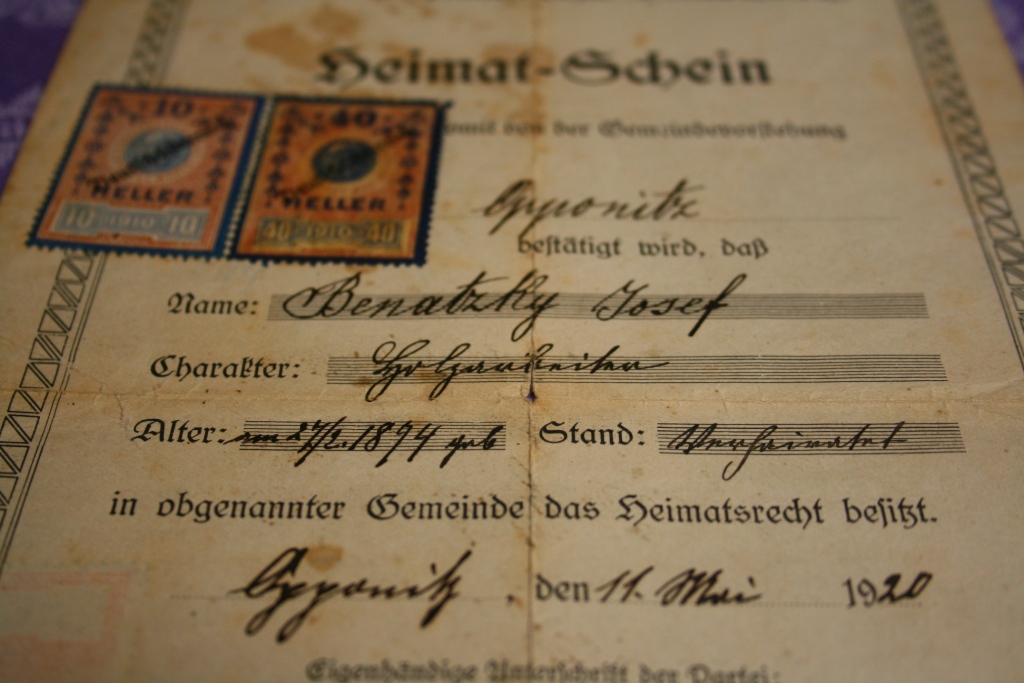 Heimat-Schein
10
HELLER
10 1910 10
40
HELLER
40 1910 40
womit von der Gemeindevorstehung
Opponitz
bestätigt wird, daß
Name: Benatzky Josef
Charakter: Holzarbeiter
Alter: am 27/2. 1894 geb Stand: Verheiratet
in obgenannter Gemeinde das Heimatsrecht besitzt.
Opponitz, den 11. Mai 1920
Eigenhändige Unterschrift der Partei: